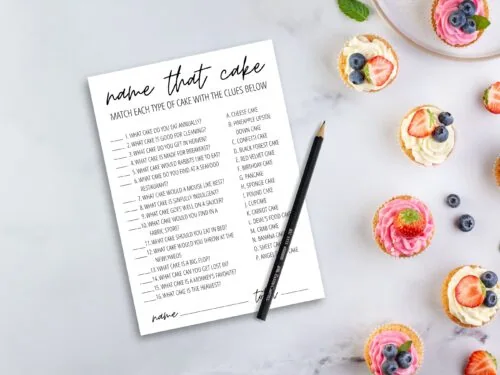 name that cake
MATCH EACH TYPE OF CAKE WITH THE CLUES BELOW
1. WHAT CAKE DO YOU EAT ANNUALLY?
2. WHAT CAKE IS GOOD FOR CLEANING?
3. WHAT CAKE DO YOU GET IN HEAVEN?
4. WHAT CAKE IS MADE FOR BREAKFAST?
5. WHAT CAKE WOULD RABBITS LIKE TO EAT?
6. WHAT CAKE DO YOU FIND AT A SEAFOOD
RESTAURANT?
7. WHAT CAKE WOULD A MOUSE LIKE BEST?
8. WHAT CAKE IS SINFULLY INDULGENT?
9. WHAT CAKE GOES WELL ON A SAUCER?
10. WHAT CAKE WOULD YOU FIND IN A
FABRIC STORE?
11. WHAT CAKE SHOULD YOU EAT IN BED?
12. WHAT CAKE WOULD YOU THROW AT THE
NEWLYWEDS
13. WHAT CAKE IS A BIG FLOP?
14. WHAT CAKE CAN YOU GET LOST IN?
15. WHAT CAKE IS A MONKEY'S FAVORITE?
16. WHAT CAKE IS THE HEAVIEST?
A. CHEESE CAKE
B. PINEAPPLE UPSIDE
DOWN CAKE
C. CONFETTI CAKE
D. BLACK FOREST CAKE
E. RED VELVET CAKE
F. BIRTHDAY CAKE
G. PANCAKE
H. SPONGE CAKE
I. POUND CAKE
J. CUPCAKE
K. CARROT CAKE
L. DEVIL'S FOOD
M. CRAB CAKE
N. BANANA
O. SWEET
P. ANGEL
name